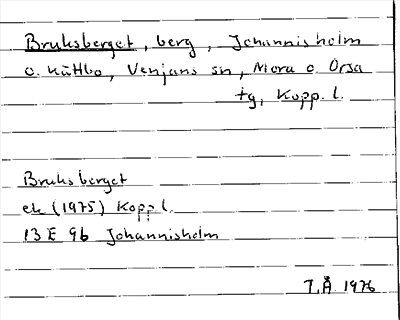 Bruksberget, berg, Johannisholm
o. Nättbo, Venjans sn, Mora o. Orsa
tg, Kopp. l.
Bruksberget
ek (1975) Kopp l.
13 E 9b Johannisholm
T.Å 1976